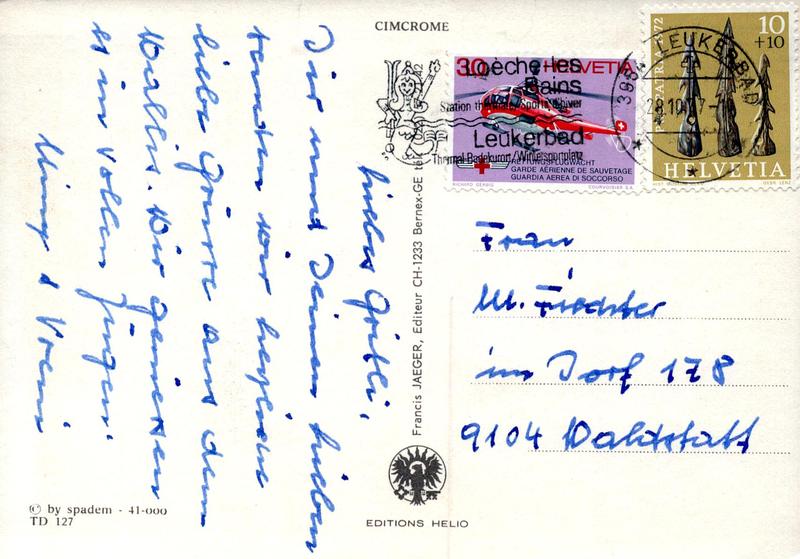 CIMCROME
Liebes Gritli,
Dir und Deinen Lieben
senden wir herzliche
liebe Grüsse aus dem
Wallis. Wir geniessen
es in vollen Zügen.
& Vreni
Francis JAEGER, Editeur CH-1233 Bernex-GE tél
© by spadem - 41-000
TD 127
EDITIONS HELIO
30 HELVETIA
RETTUNGSFLUGWACHT
GARDE AÉRIENNE DE SAUVETAGE
GUARDIA AEREA DI SOCCORSO
COURVOISIER S.A.
Loèche-les
Bains
Station thermale/Sports d'hiver
Leukerbad
Thermal-Badekurort/Wintersportplatz
3954 LEUKERBAD
10
+10
PRO PATRIA 1972
HELVETIA
Frau
M. Fiechter
im Dorf 178
9104 Waldstatt